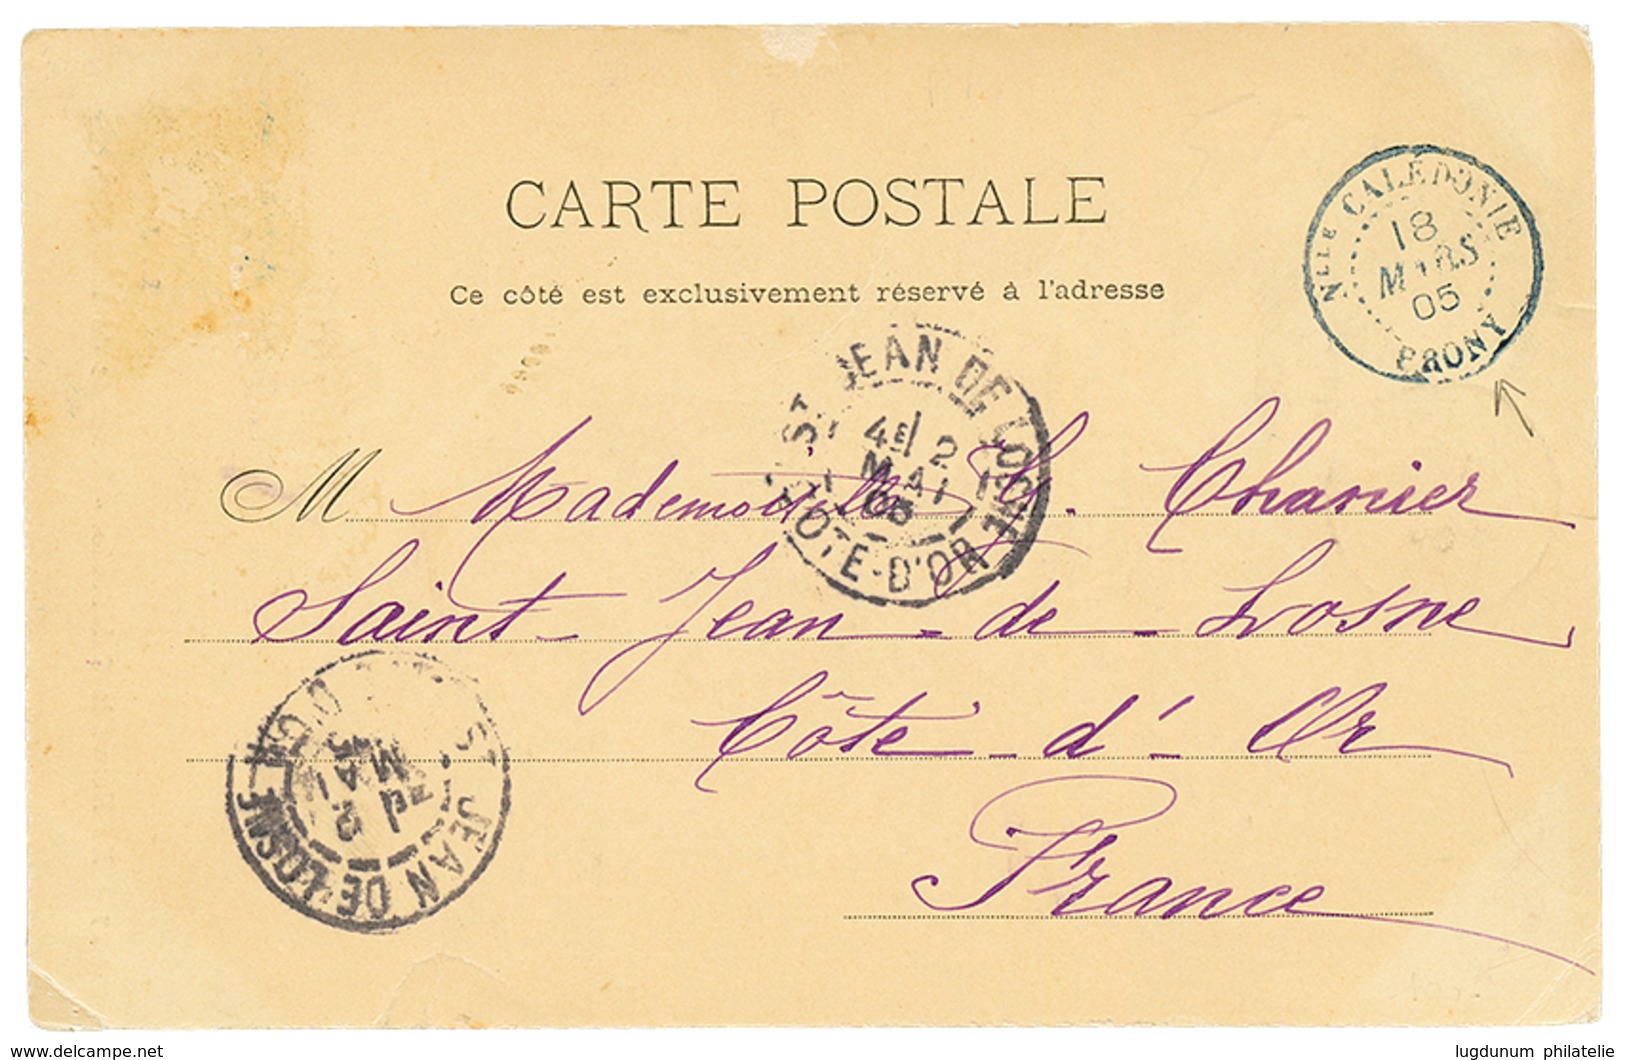 CARTE POSTALE
Ce côté est exclusivement réservé à l'adresse
NLLE CALÉDONIE
18
MARS
05
PRONY
ST JEAN DE LOSNE
4E 2
MAI
05
CÔTE-D'OR
M Mademoiselle Chanier
Saint-Jean-de-Losne
Côte-d'Or
France
ST JEAN DE LOSNE
2
MAI
delcampe.net
lugdunum philatelie